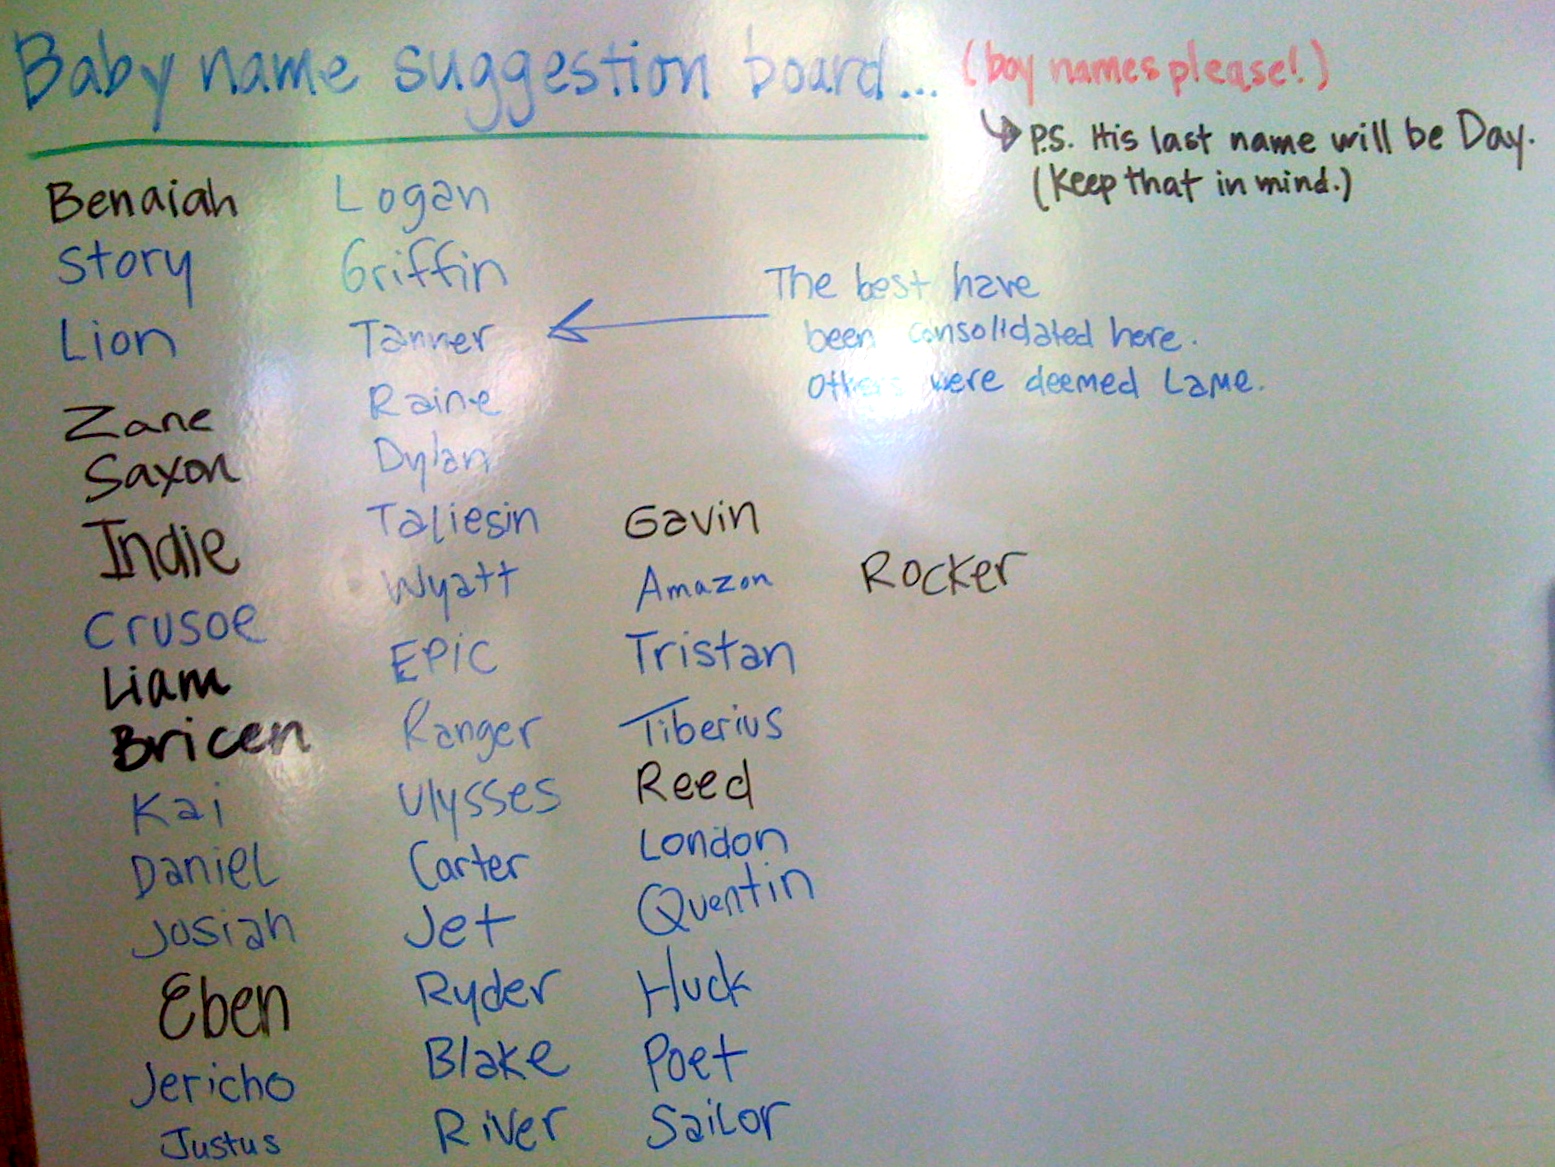 Baby name suggestion board... (boy names please!)
P.S. His last name will be Day.
(Keep that in mind.)
Benaiah
Story
Lion
Zane
Saxon
Indie
Crusoe
Liam
Bricen
Kai
Daniel
Josiah
Eben
Jericho
Justus
Logan
Griffin
Tanner
Raine
Dylan
Taliesin
Wyatt
EPIC
Ranger
Ulysses
Carter
Jet
Ryder
Blake
River
The best have
been consolidated here.
Others were deemed Lame.
Gavin
Amazon
Tristan
Tiberius
Reed
London
Quentin
Huck
Poet
Sailor
Rocker